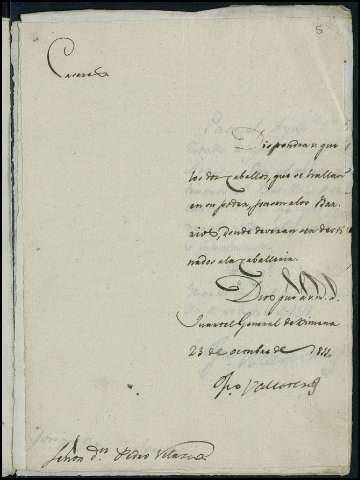 5
Dispondran que
los dos Caballos, que se hallan
en su poder, pasen a los Bar
rios, donde deveran ser desti
nados a la Caballeria.
Dios gue a v. m. a.
Quartel General de Ximena
23 de octubre de
Señor Dn Pedro Velasco